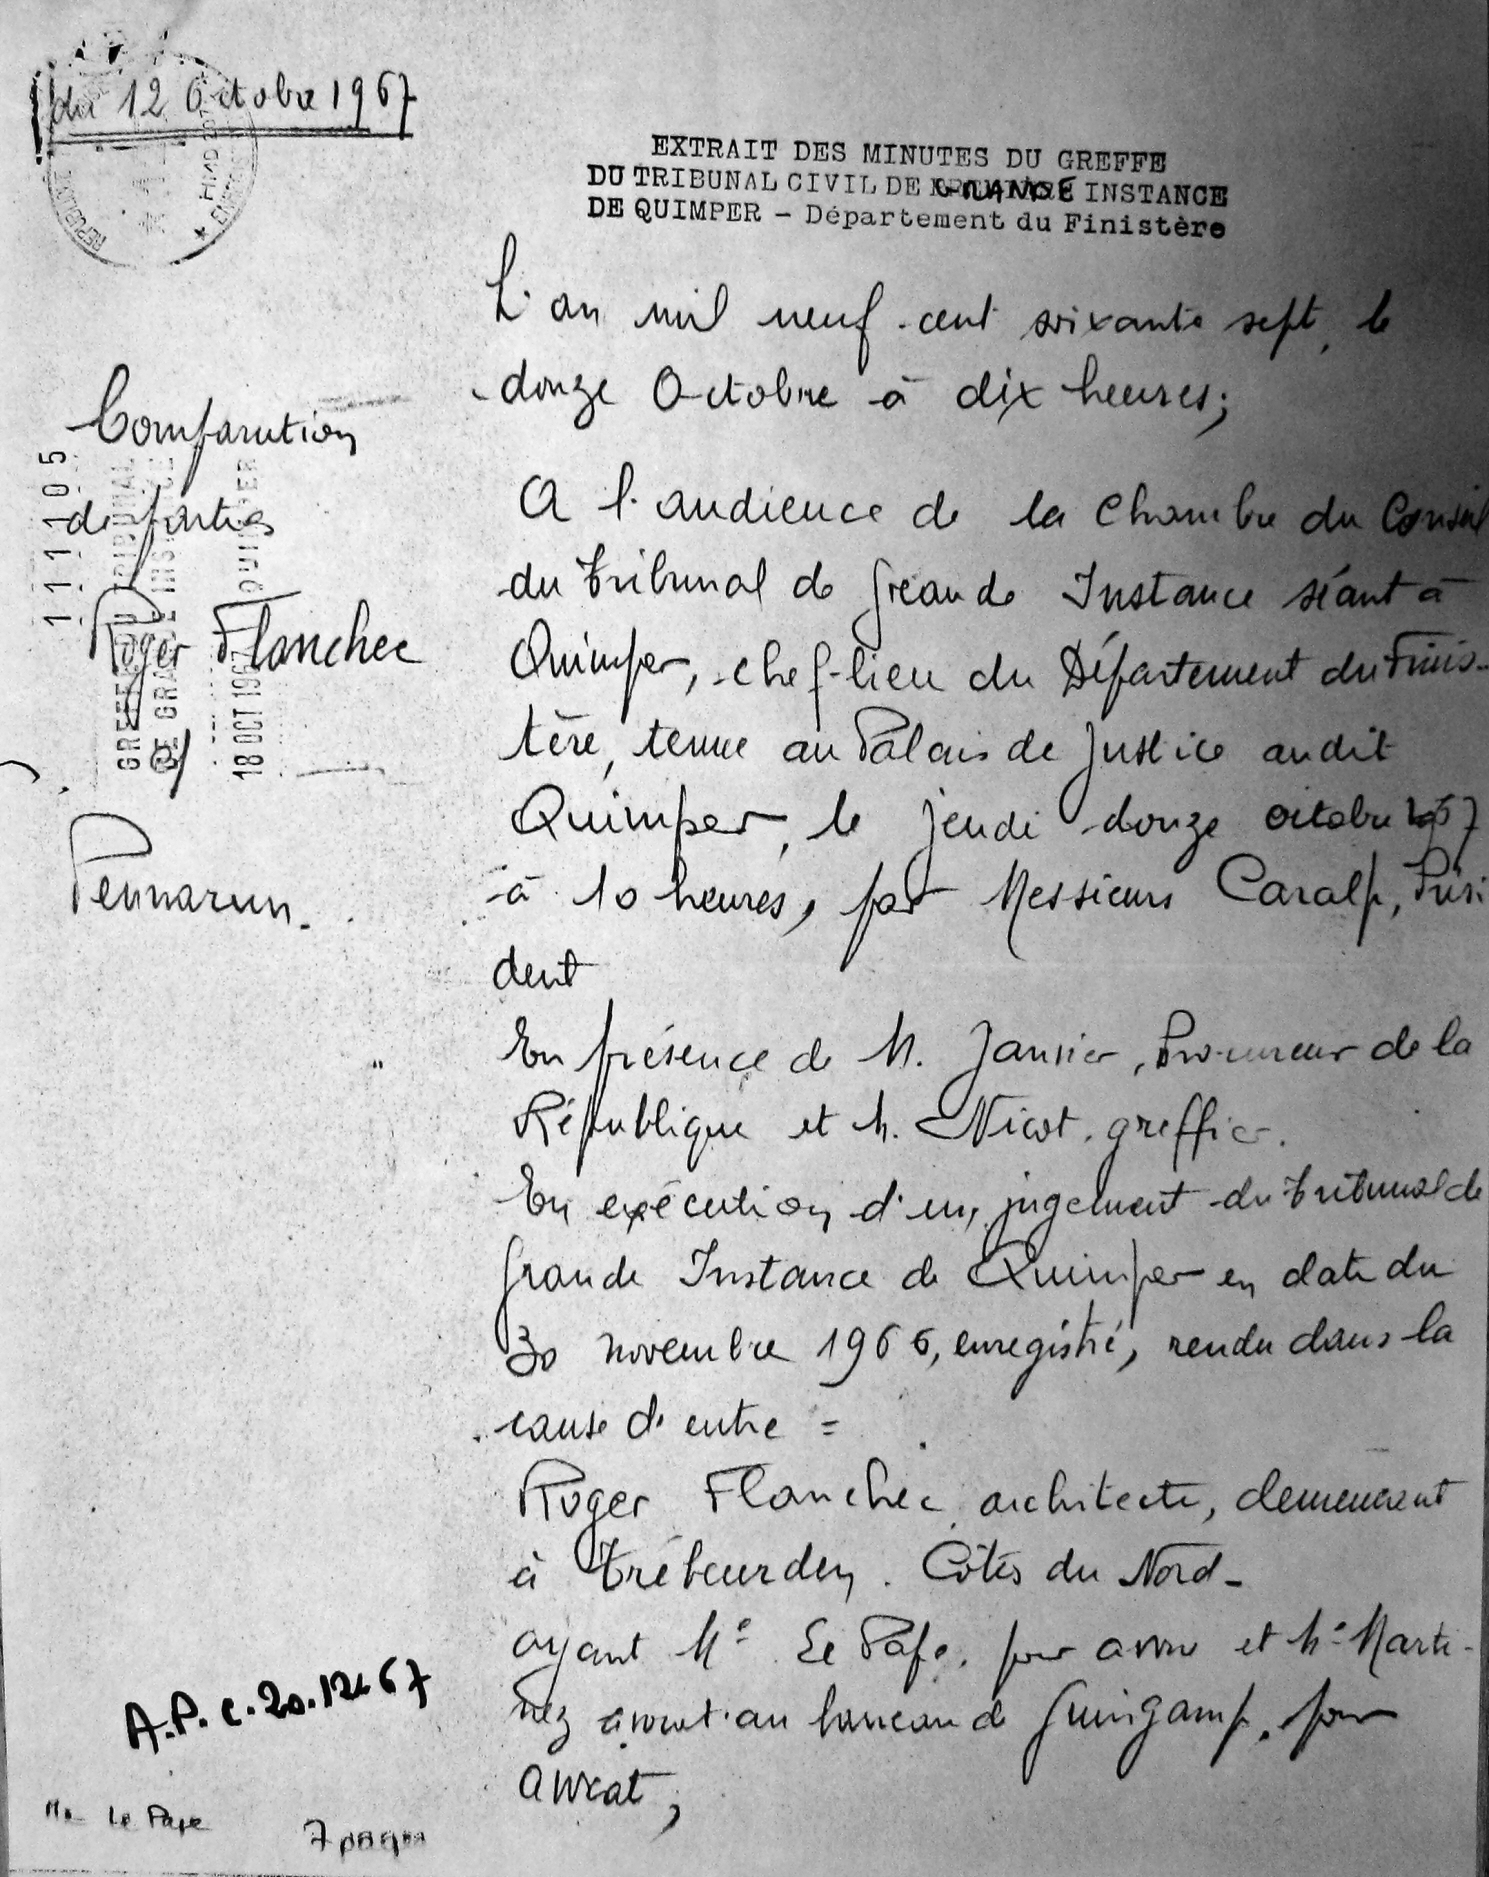 du 12 Octobre 1967
EXTRAIT DES MINUTES DU GREFFE
DU TRIBUNAL CIVIL DE GRANDE INSTANCE
DE QUIMPER - Département du Finistère
L'an mil neuf cent soixante sept, le
douze Octobre à dix heures;
Comparution
de parties
Roger Flanchec
c/
Pennarun.
111105
GREFFE DU TRIBUNAL
DE GRANDE INSTANCE
18 OCT 1967 QUIMPER
A l'audience de la Chambre du Conseil
du Tribunal de Grande Instance séant à
Quimper, chef-lieu du Département du Finis-
tère, tenue au Palais de Justice audit
Quimper, le jeudi douze octobre 1967
à 10 heures, par Messieurs Caralp, Prési
dent
En présence de M. Janvier, Procureur de la
République et M. Nicot, greffier.
En exécution d'un jugement du Tribunal de
Grande Instance de Quimper en date du
30 novembre 1966, enregistré, rendu dans la
cause d'entre =
Roger Flanchec architecte, demeurant
à Trébeurden. Côtes du Nord -
ayant Me Le Pape, pour avoué et Me Marti-
nez avocat au barreau de Guingamp, pour
avocat;
A.P.c. 20.12.67
Me Le Pape
7 pages